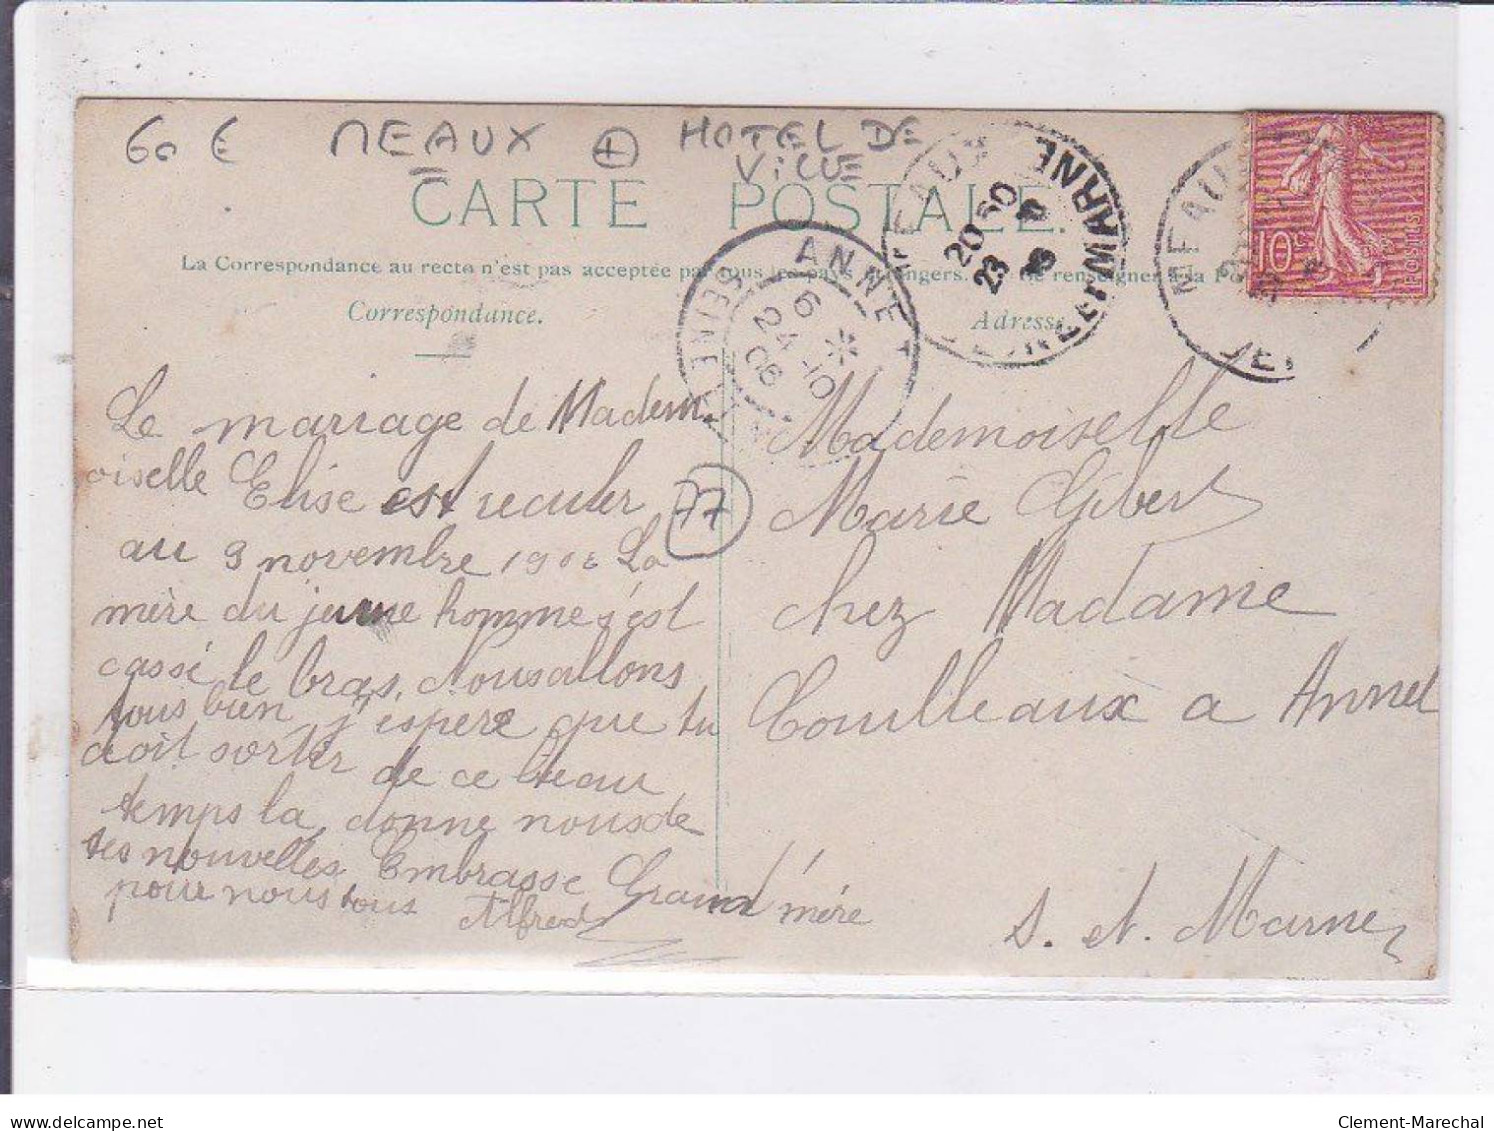 60 € MEAUX + HOTEL DE
VILLE
CARTE POSTALE.
La Correspondance au recto n'est pas acceptée par tous les pays étrangers. Se renseigner à la Poste
Correspondance.
Adresse
ANNET
SEINE-ET-M
6 *
24 -10
06
MEAUX
SEINE-ET-MARNE
20 50
23
MEAUX
10c
POSTES
Le mariage de Madem
oiselle Elise est reculer
au 9 novembre 1906 La
mère du jeune homme s'est
cassé le bras. Nous allons
tous bien j'espère que tu
doit sortir de ce beau
temps la, donne nous de
tes nouvelles. Embrasse Grand' mère
pour nous tous Alfred
77
Mademoiselle
Marie Gibert
chez Madame
Coulleaux a Annet
S. et. Marne
Clement-Marechal